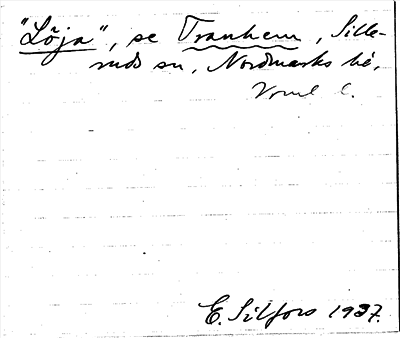 "Löja", se Tranhem, Sille-
ruds sn, Nordmarks hd,
Vrml l.
E. Silfors 1937.